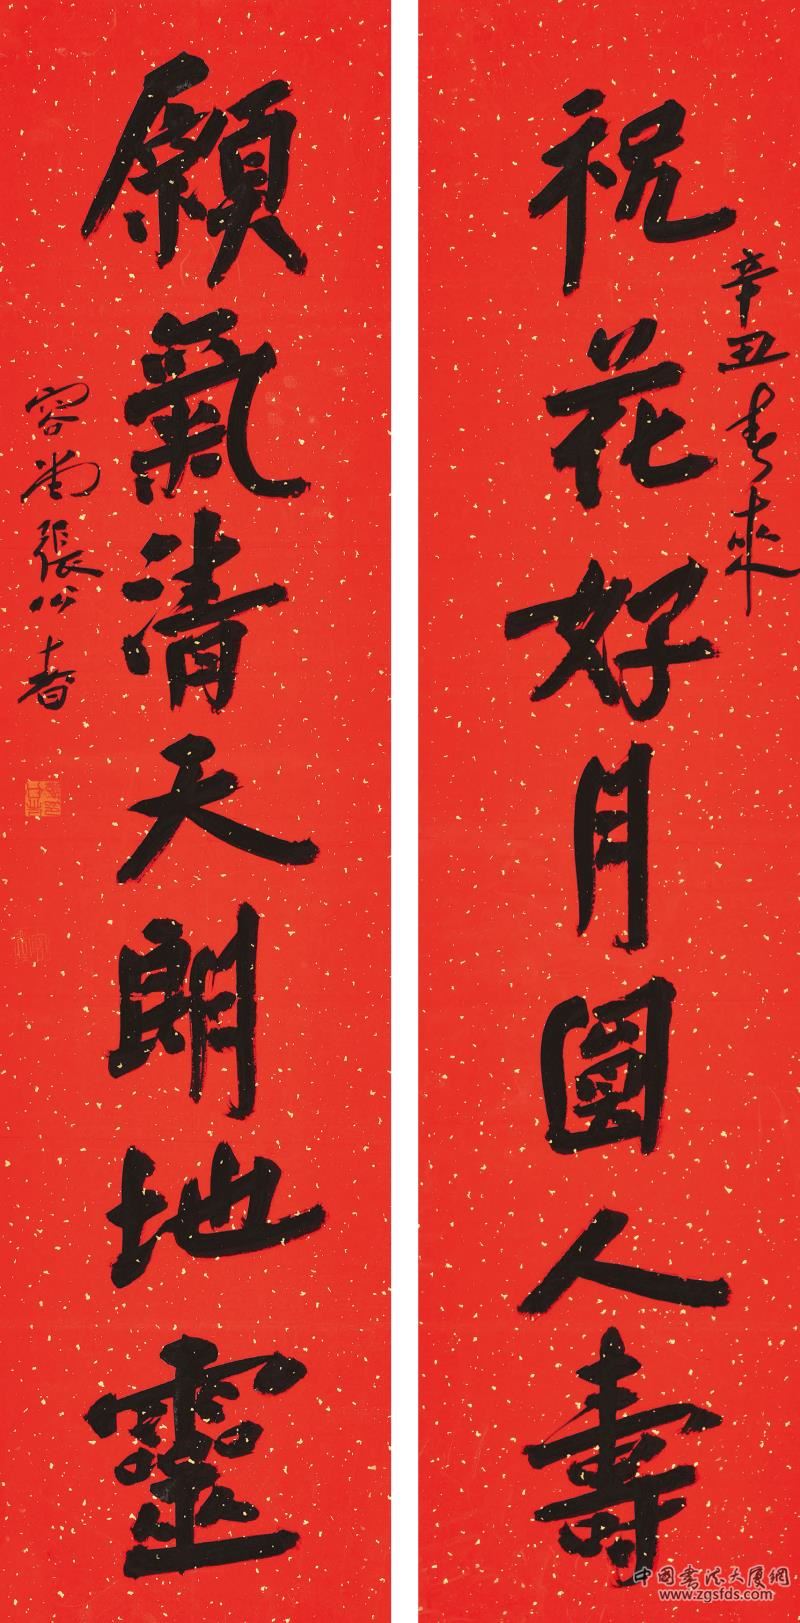 辛丑春來
祝花好月圓人壽
願氣清天朗地靈
容尚張公者
中国书法大厦网
www.zgsfds.com